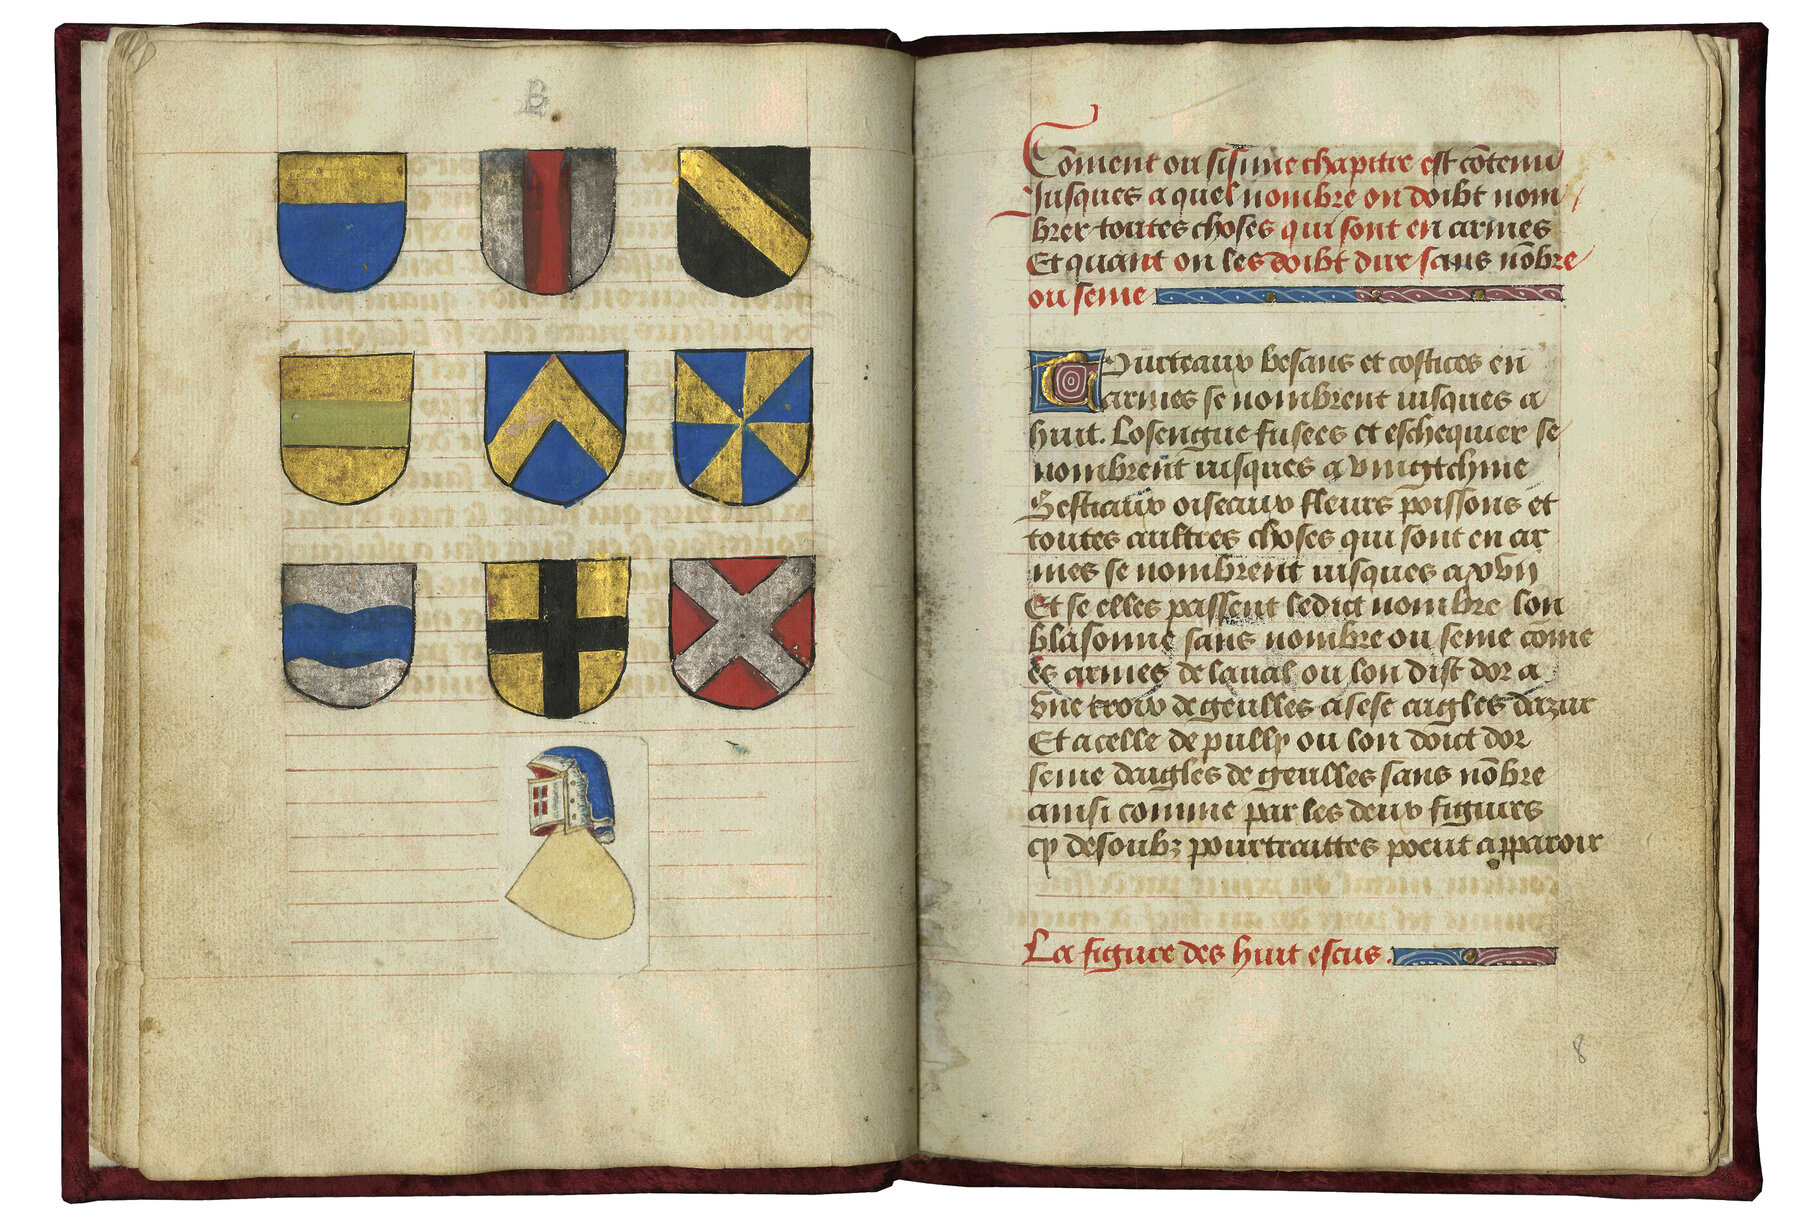 B
Coment ou sisime chapitre est côtenu
Jusques a quel nombre on doibt nom
brer toutes choses qui sont en armes
Et quant on les doibt dire sans nôbre
ou seme
Tourteaux besans et costices en
armes se nombrent iusques a
huit. Losengue fusees et eschequier se
nombrent iusques a vingtchinc
Bestiaux oiseaux fleurs poissons et
toutes aultres choses qui sont en ar
mes se nombrent iusques a xvij
Et se elles passent ledict nombre lon
blasonne sans nombre ou seme côme
es armes de laual ou lon dist dor a
vne croix de geulles a sese aigles dazur
Et a celle de pully ou lon doict dor
seme daigles de geulles sans nôbre
ainsi comme par les deux figures
cy desoubz pourtraittes poeut apparoir
La figure des huit escus.
8